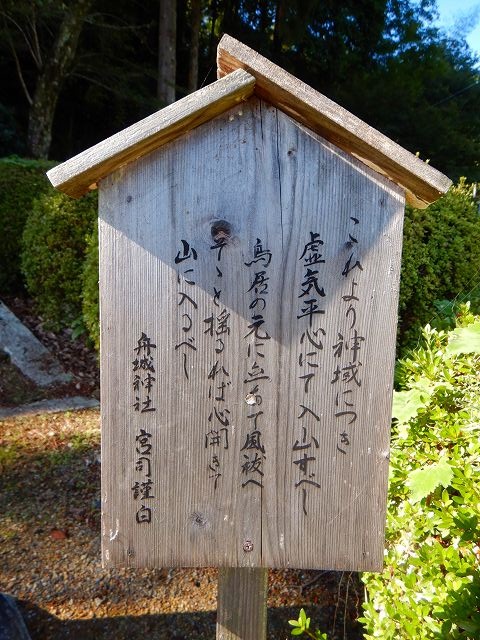 これより神域につき
虚気平心にて入山すべし
鳥居の元に立ちて風祓へ
そよと揺るれば心開きて
山に入るべし
舟城神社 宮司謹白